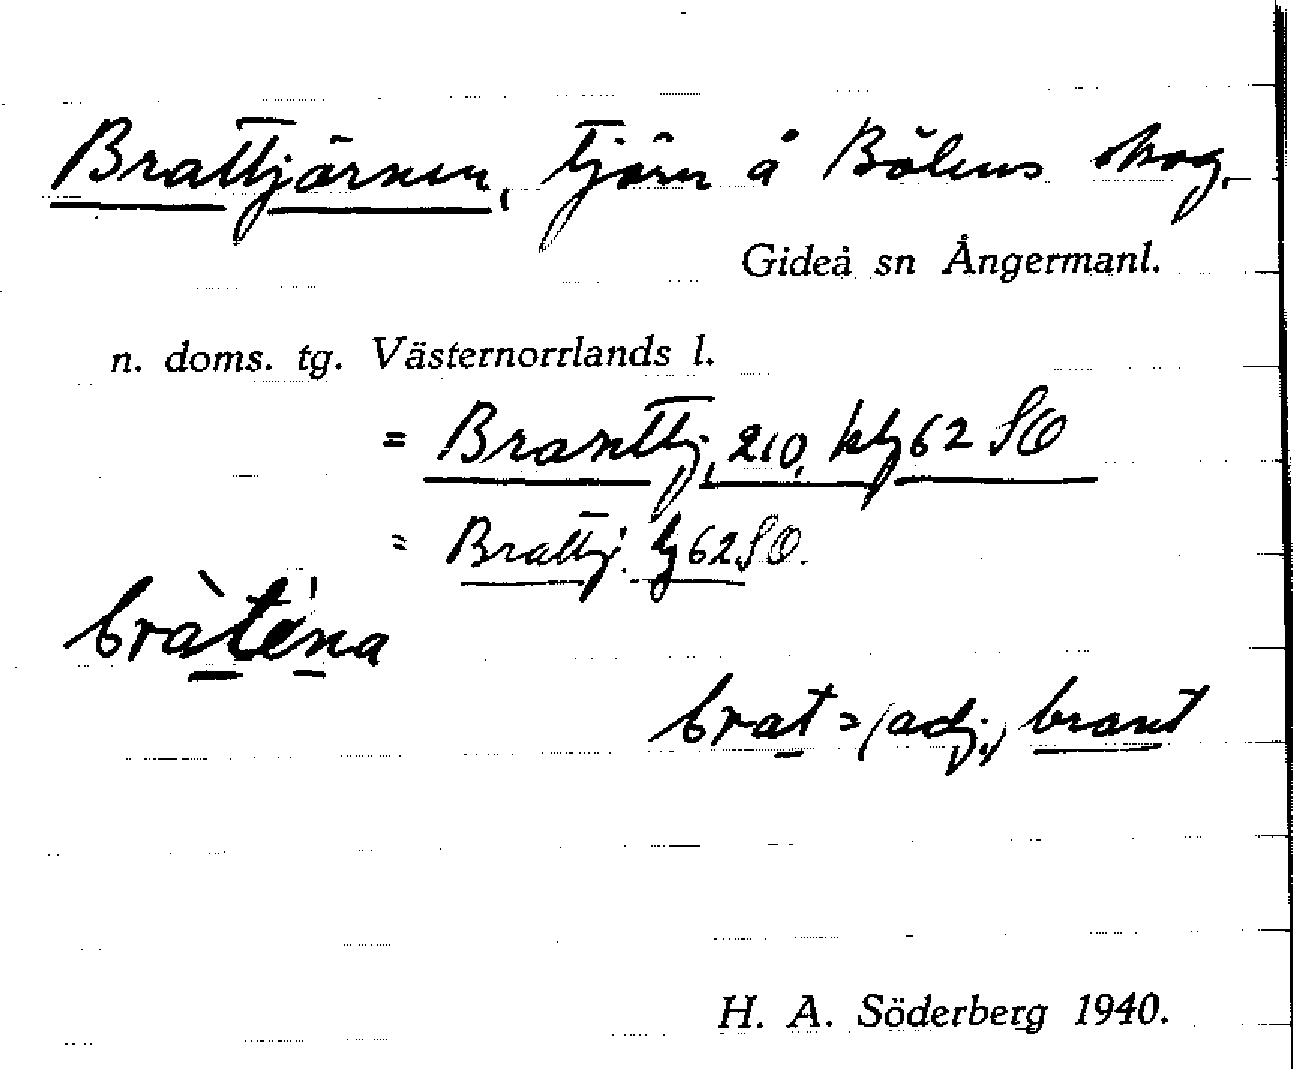 Brattjärnen, tjärn å Bölens skog.
Gideå sn Ångermanl.
n. doms. tg. Västernorrlands l.
= Branttj, 210, kbl 62 SO
= Brattj. bl 62 SO.
bràténa
brat = (adj.) brant
H. A. Söderberg 1940.